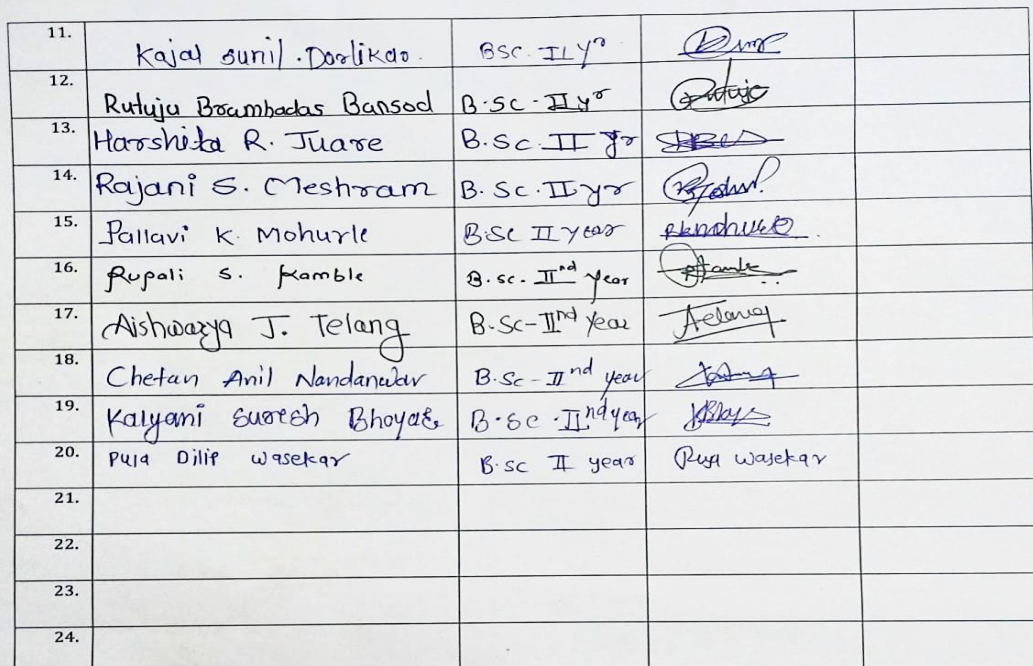 11. Kajal Sunil . Dorlikar. BSC. II Yr
12. Rutuja Brambadas Bansod B.SC - II yr Rutuja
13. Harshita R. Juare B.Sc. II Yr
14. Rajani S. Meshram B. Sc. II yr
15. Pallavi K. Mohurle B.Sc II year PKmohurle
16. Rupali S. Kamble B.sc. IInd Year
17. Aishwarya J. Telang B.Sc-IInd Year ATelang
18. Chetan Anil Nandanwar B.Sc - IInd year
19. Kalyani Suresh Bhoyar B.Sc - IInd year
20. Puja Dilip Wasekar B.sc II year Puja Wasekar
21.
22.
23.
24.